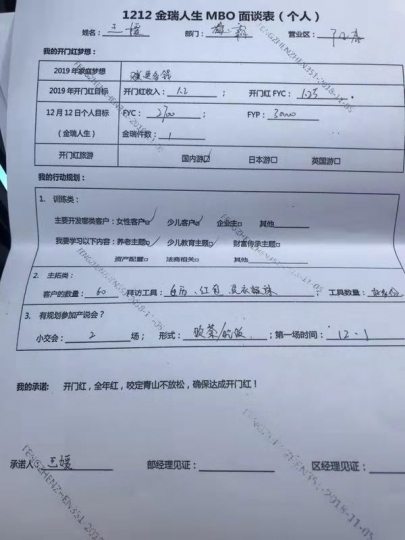 1212 金瑞人生 MBO 面谈表（个人）
姓名：王媛 部门： 营业区：
我的开门红梦想：
2019 年家庭梦想
2019 年开门红目标 开门红收入：1.2 开门红 FYC：1.25
12 月 12 日个人目标 FYC：2700 FYP：30000
（金瑞人生） 金瑞件数：1
开门红旅游 国内游□ 日本游□ 英国游□
我的行动规划：
1. 训练类：
主要开发哪类客户：女性客户□ 少儿客户□ 企业主□ 其他
我要学习以下内容：养老主题□ 少儿教育主题□ 财富传承主题□
资产配置□ 法商相关□ 其他
2. 主拓类：
客户的数量：60 拜访工具：台历、红包、 工具数量：
3. 有规划参加产说会？
小交会：2 场； 形式： ；第一场时间：12-1
我的承诺： 开门红，全年红，咬定青山不放松，确保达成开门红！
承诺人：王媛 部经理见证： 区经理见证：
TENGZHENZHEN351-2018-11-05